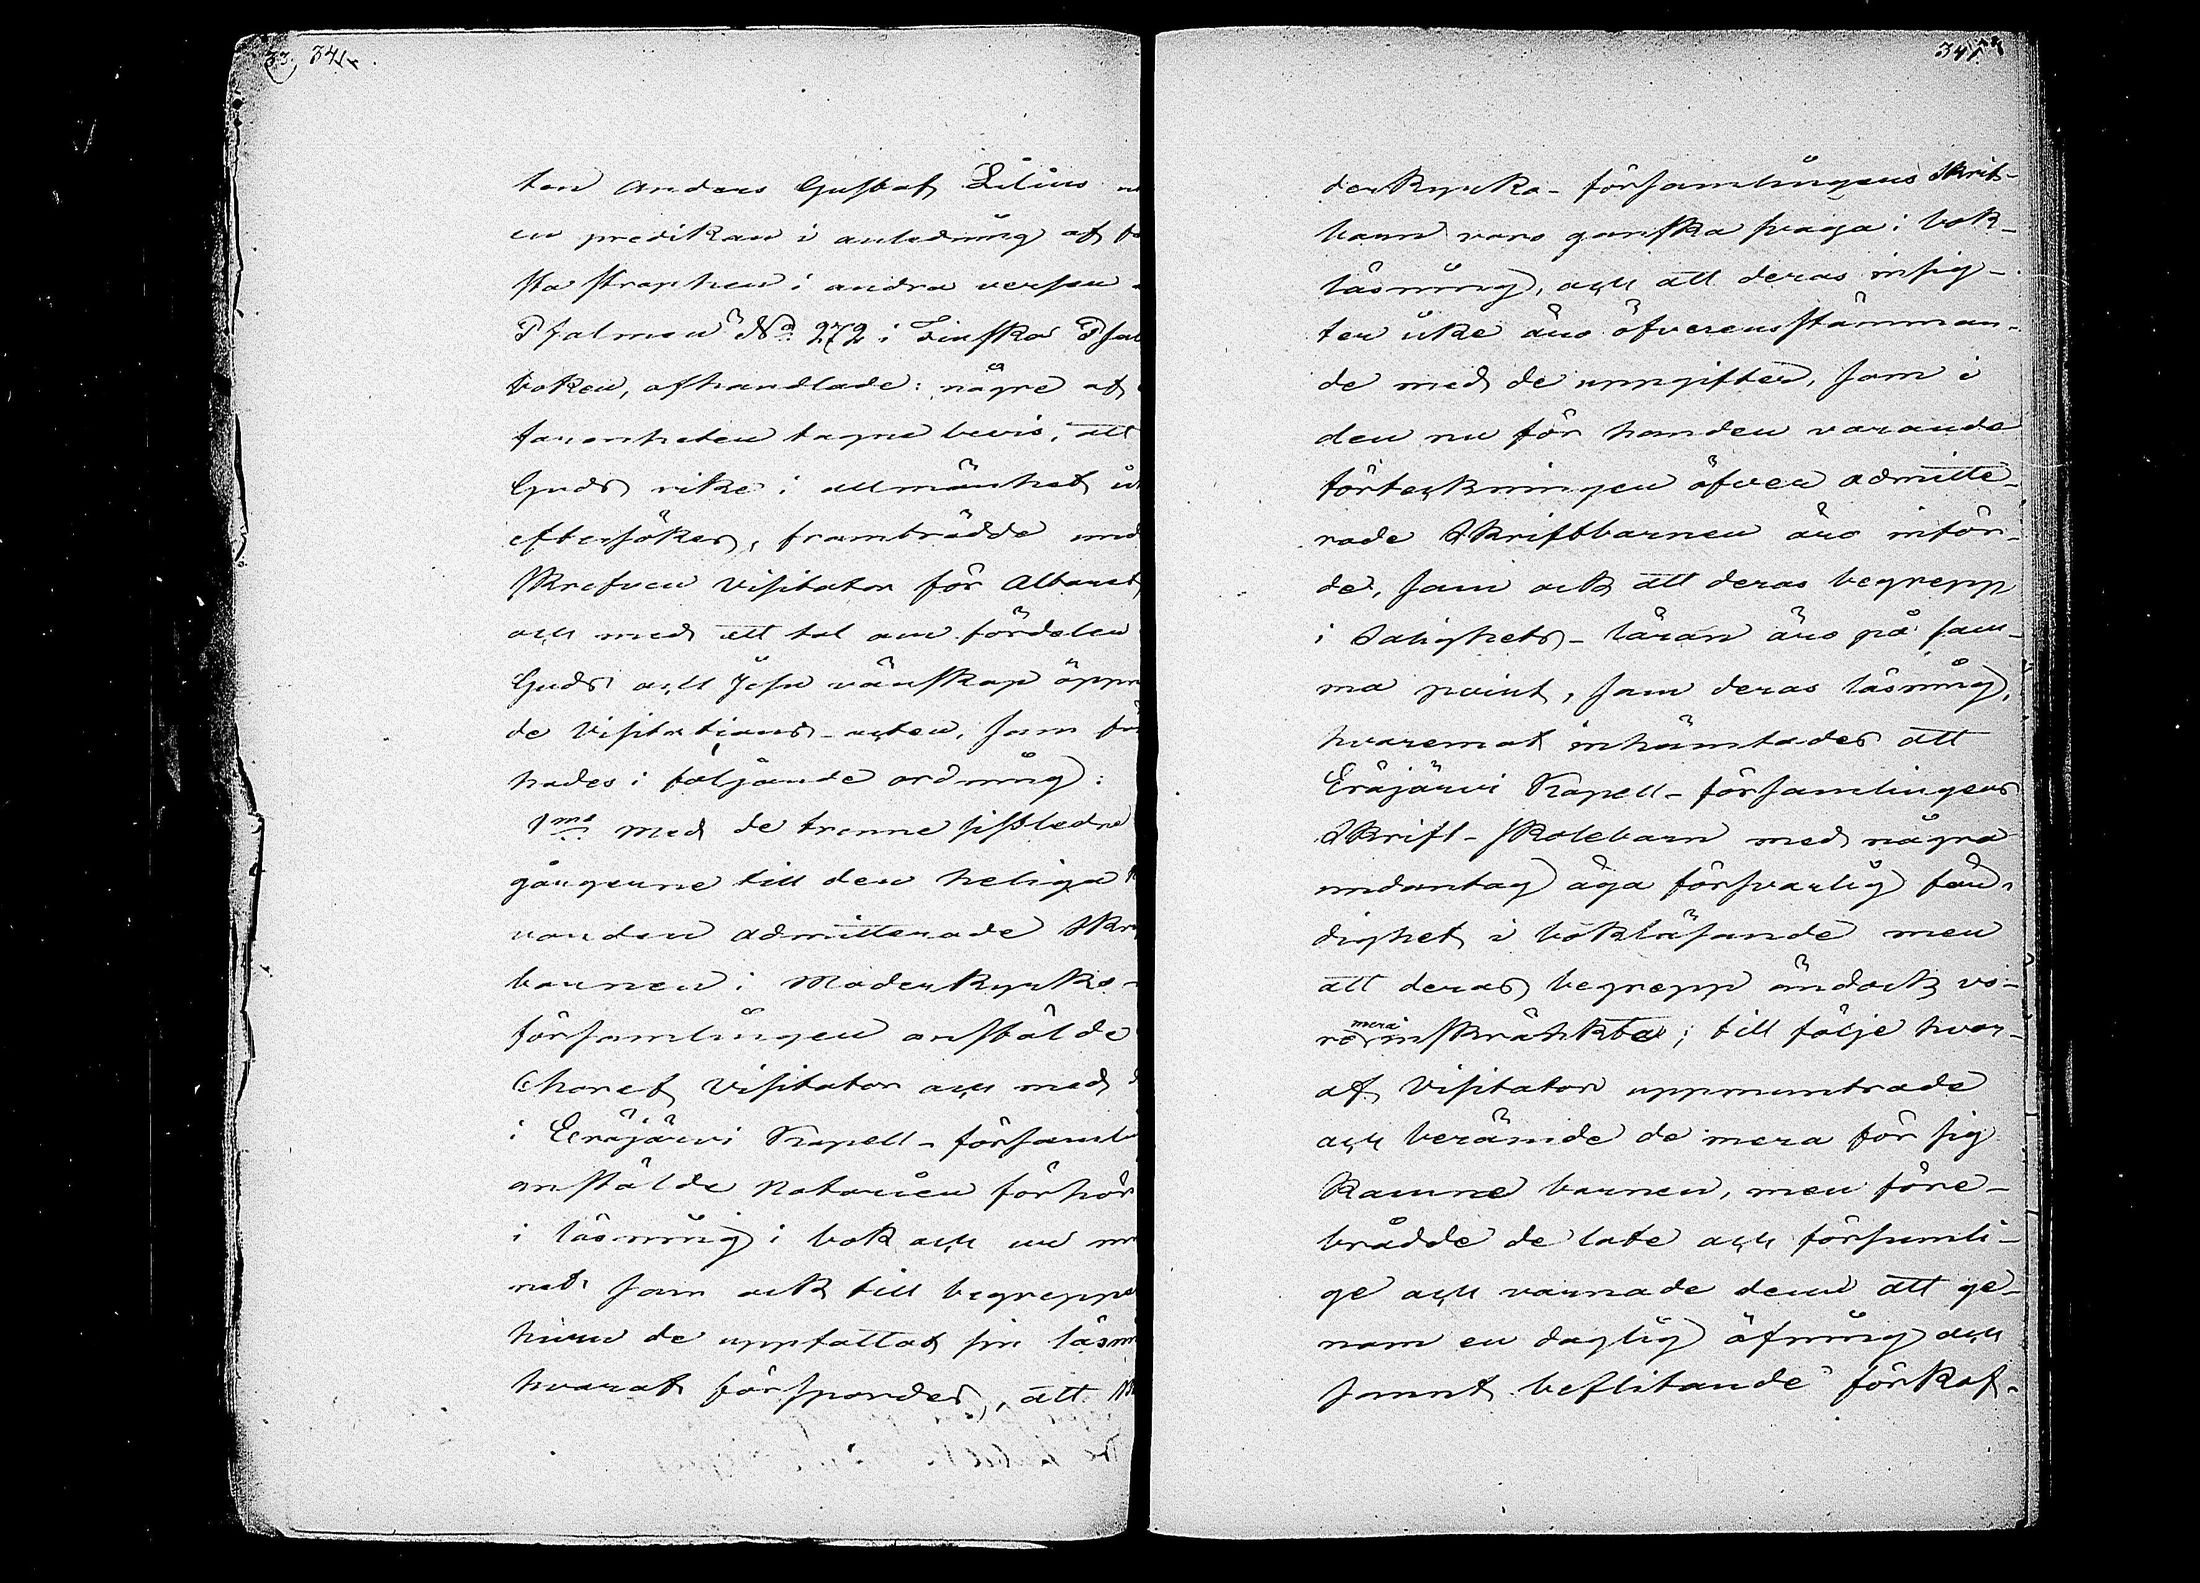 33. 341.
ten Anders Gustaf Lilius
en predikan i anledning af
sta strophen i andra versen
Psalmen No 272 i Finska Psal
boken, afhandlade: någre af
farenheten tagne bevis, att
Guds rike i allmänhet
eftersökes, framträdde und
skrefven Visitator för Altaret
och med ett tal om fördelen
Guds och Jesu vänskap öppn
de Visitations-acten, som för
hades i följande ordning:
1mo Med de trenne sistledne
gångerne till den heliga
varden admitterade Skr
barnen i Moderkyrko-
församlingen anstälde
Choret Visitator och med
i Eräjärvi Kapell-församl
anstälde Notarien förhör
i läsning i bok och
nat som ock till begreppe
huru de uppfattat sin läsni
hvaraf förspordes, att M
341.
derkyrko-församlingens Skrift-
barn voro ganska svaga i bok-
läsning, och att deras insig-
ter icke äro öfverensstämman-
de med de uppgifter, som i
den nu för handen varande
förteckningen öfver admitte-
rade Skriftbarnen äro inför-
de, som ock att deras begrepp
i Salighets-läran äro på sam-
ma point, som deras läsning,
hvaremot inhämtades att
Eräjärvi Kapell-församlingens
Skrift-skolebarn med några
undantag äga försvarlig fär-
dighet i bokläsande men
att deras begrepp ändock vo-
mera
ro inskränkta; till följe hvar-
af Visitator uppmuntrade
och berömde de mera för sig
komne barnen, men före-
brådde de late och försumli-
ge och varnade dem att ge-
nom en daglig öfning och
samt beflitande förkof-